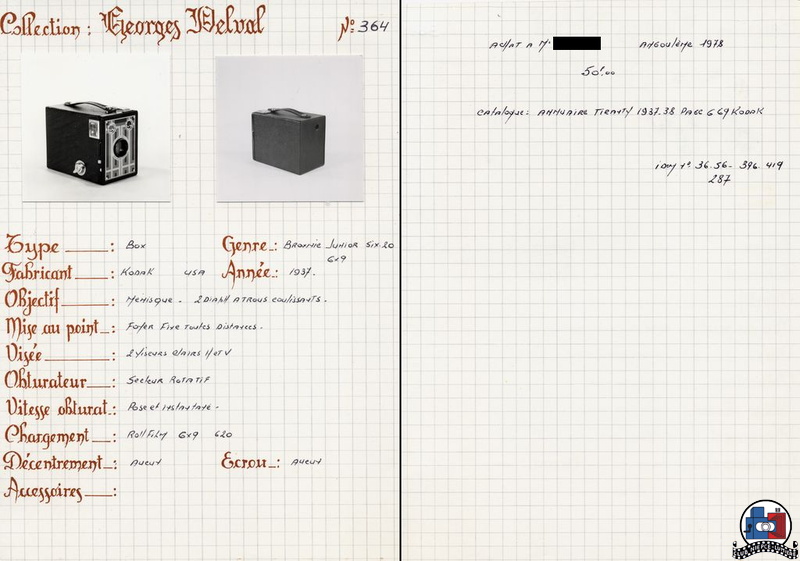 Collection : Georges Delval N° 364
Type : Box Genre : Brownie Junior Six-20
6x9
Fabricant : Kodak USA Année : 1937.
Objectif : Ménisque - 2 Diaph A trous coulissants.
Mise au point : Foyer Fixe toutes Distances.
Visée : 2 Viseurs Clairs H et V
Obturateur : Secteur Rotatif
Vitesse obturat. : Pose et instantané -
Chargement : Roll Film 6x9 620
Décentrement : Aucun Ecrou : Aucun
Accessoires :
Achat A Mr Angoulême 1978
50f.00
Catalogue : Annuaire Tiranty 1937.38 Page 669 Kodak
idem n° 36.56- 396.419
287